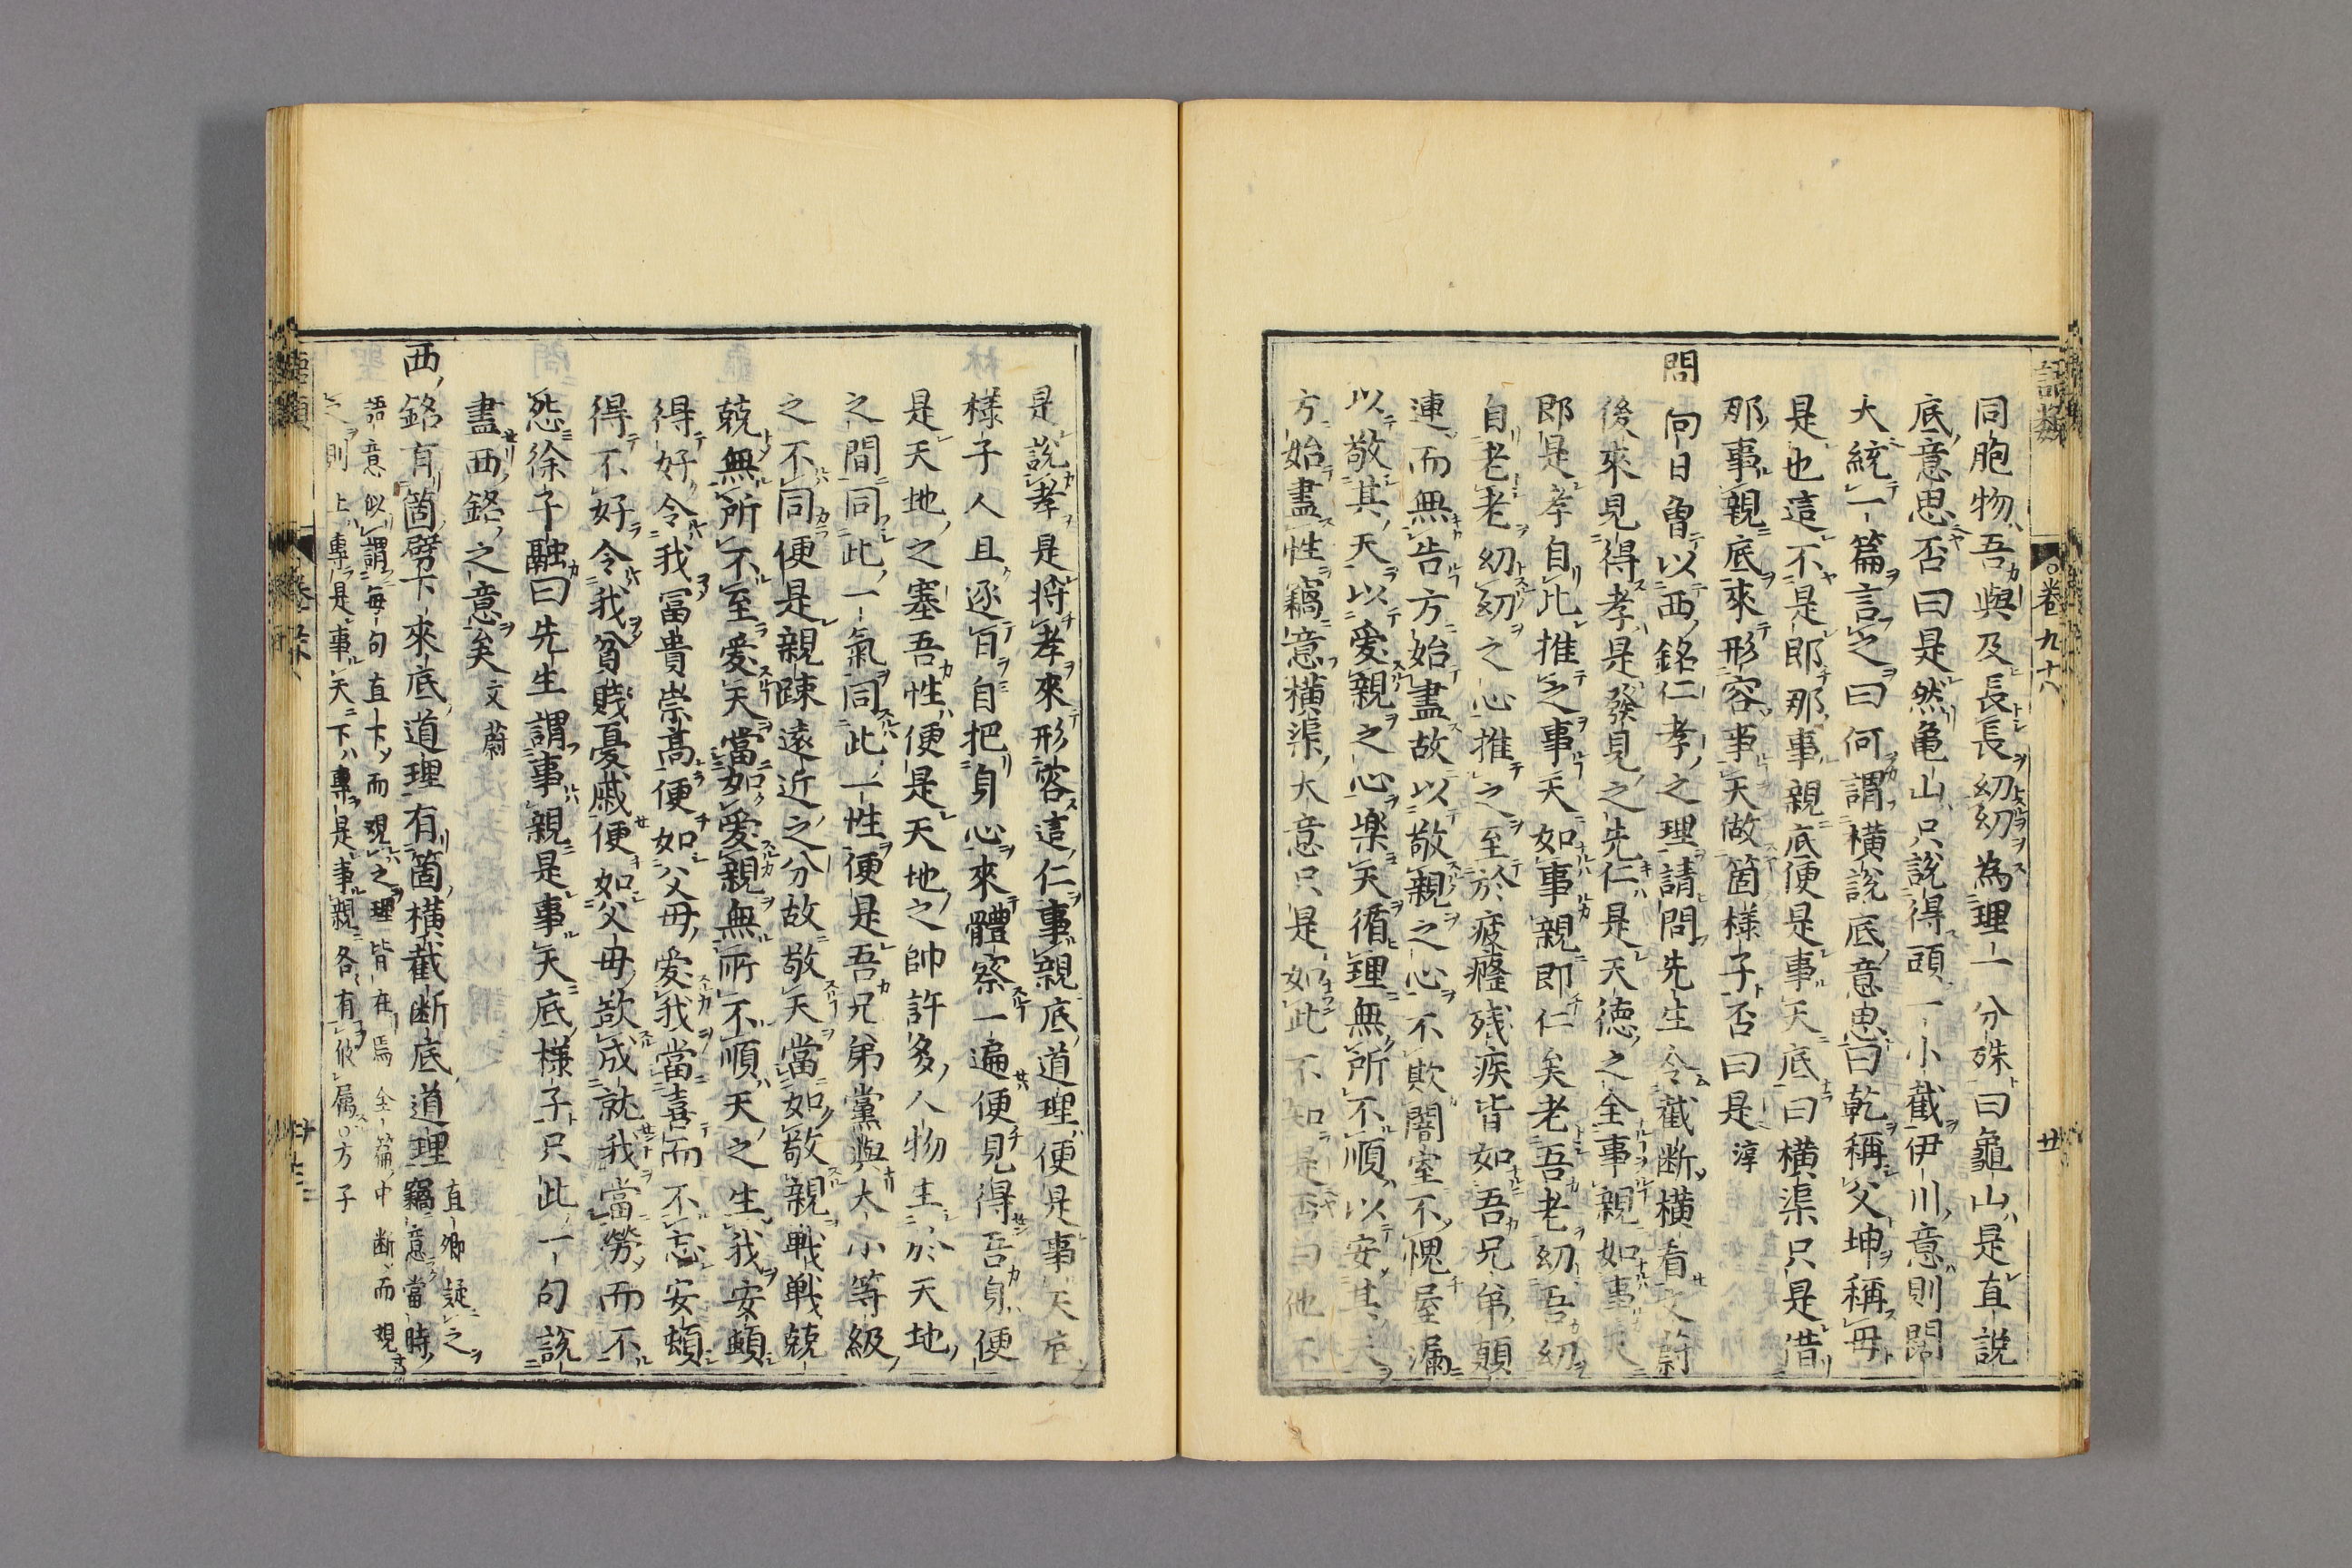 語類 卷九十八 廿
同胞物吾與及長長幼幼為理一分殊曰龜山是直說
底意思否曰是然亀山只說得頭一小截伊川意則闊
大統一篇言之曰何謂橫說底意思曰乾稱父坤稱母
是也這不是即那事親底便是事天底曰橫渠只是借
那事親底來形容事天做箇樣子否曰是淳
問向日曾以西銘仁孝之理請問先生令截断橫看文蔚
後來見得孝是發見之先仁是天德之全事親如事天
即是孝自此推之事天如事親即仁矣老吾老幼吾幼
自老老幼幼之心推之至於疲癃残疾皆如吾兄弟顛
連而無告方始盡故以敬親之心不欺闇室不愧屋漏
以敬其天以愛親之心樂天循理無所不順以安其天
方始盡性竊意橫渠大意只是如此不知是否曰他不
是說孝是將孝來形容這仁事親底道理便是事天底
樣子人且逐日自把身心來體察一遍便見得吾身便
是天地之塞吾性便是天地之帥許多人物生於天地
之間同此一氣同此一性便是吾兄弟黨與大小等級
之不同便是親疎遠近之分故敬天當如敬親戰戰兢
兢無所不至愛天當如愛親無所不順天之生我安頓
得好令我冨貴崇髙便如父母愛我當喜而不忘安頓
得不好令我貧賤憂戚便如父母欲成就我當勞而不
怨徐子融曰先生謂事親是事天底樣子只此一句說
盡西銘之意矣文蔚
西銘有箇劈下來底道理有箇橫截断底道理直卿疑之竊意當時
語意似謂每句直下而觀之理皆在焉全篇中断而觀
之則上專是事天下專是事親各有攸属方子